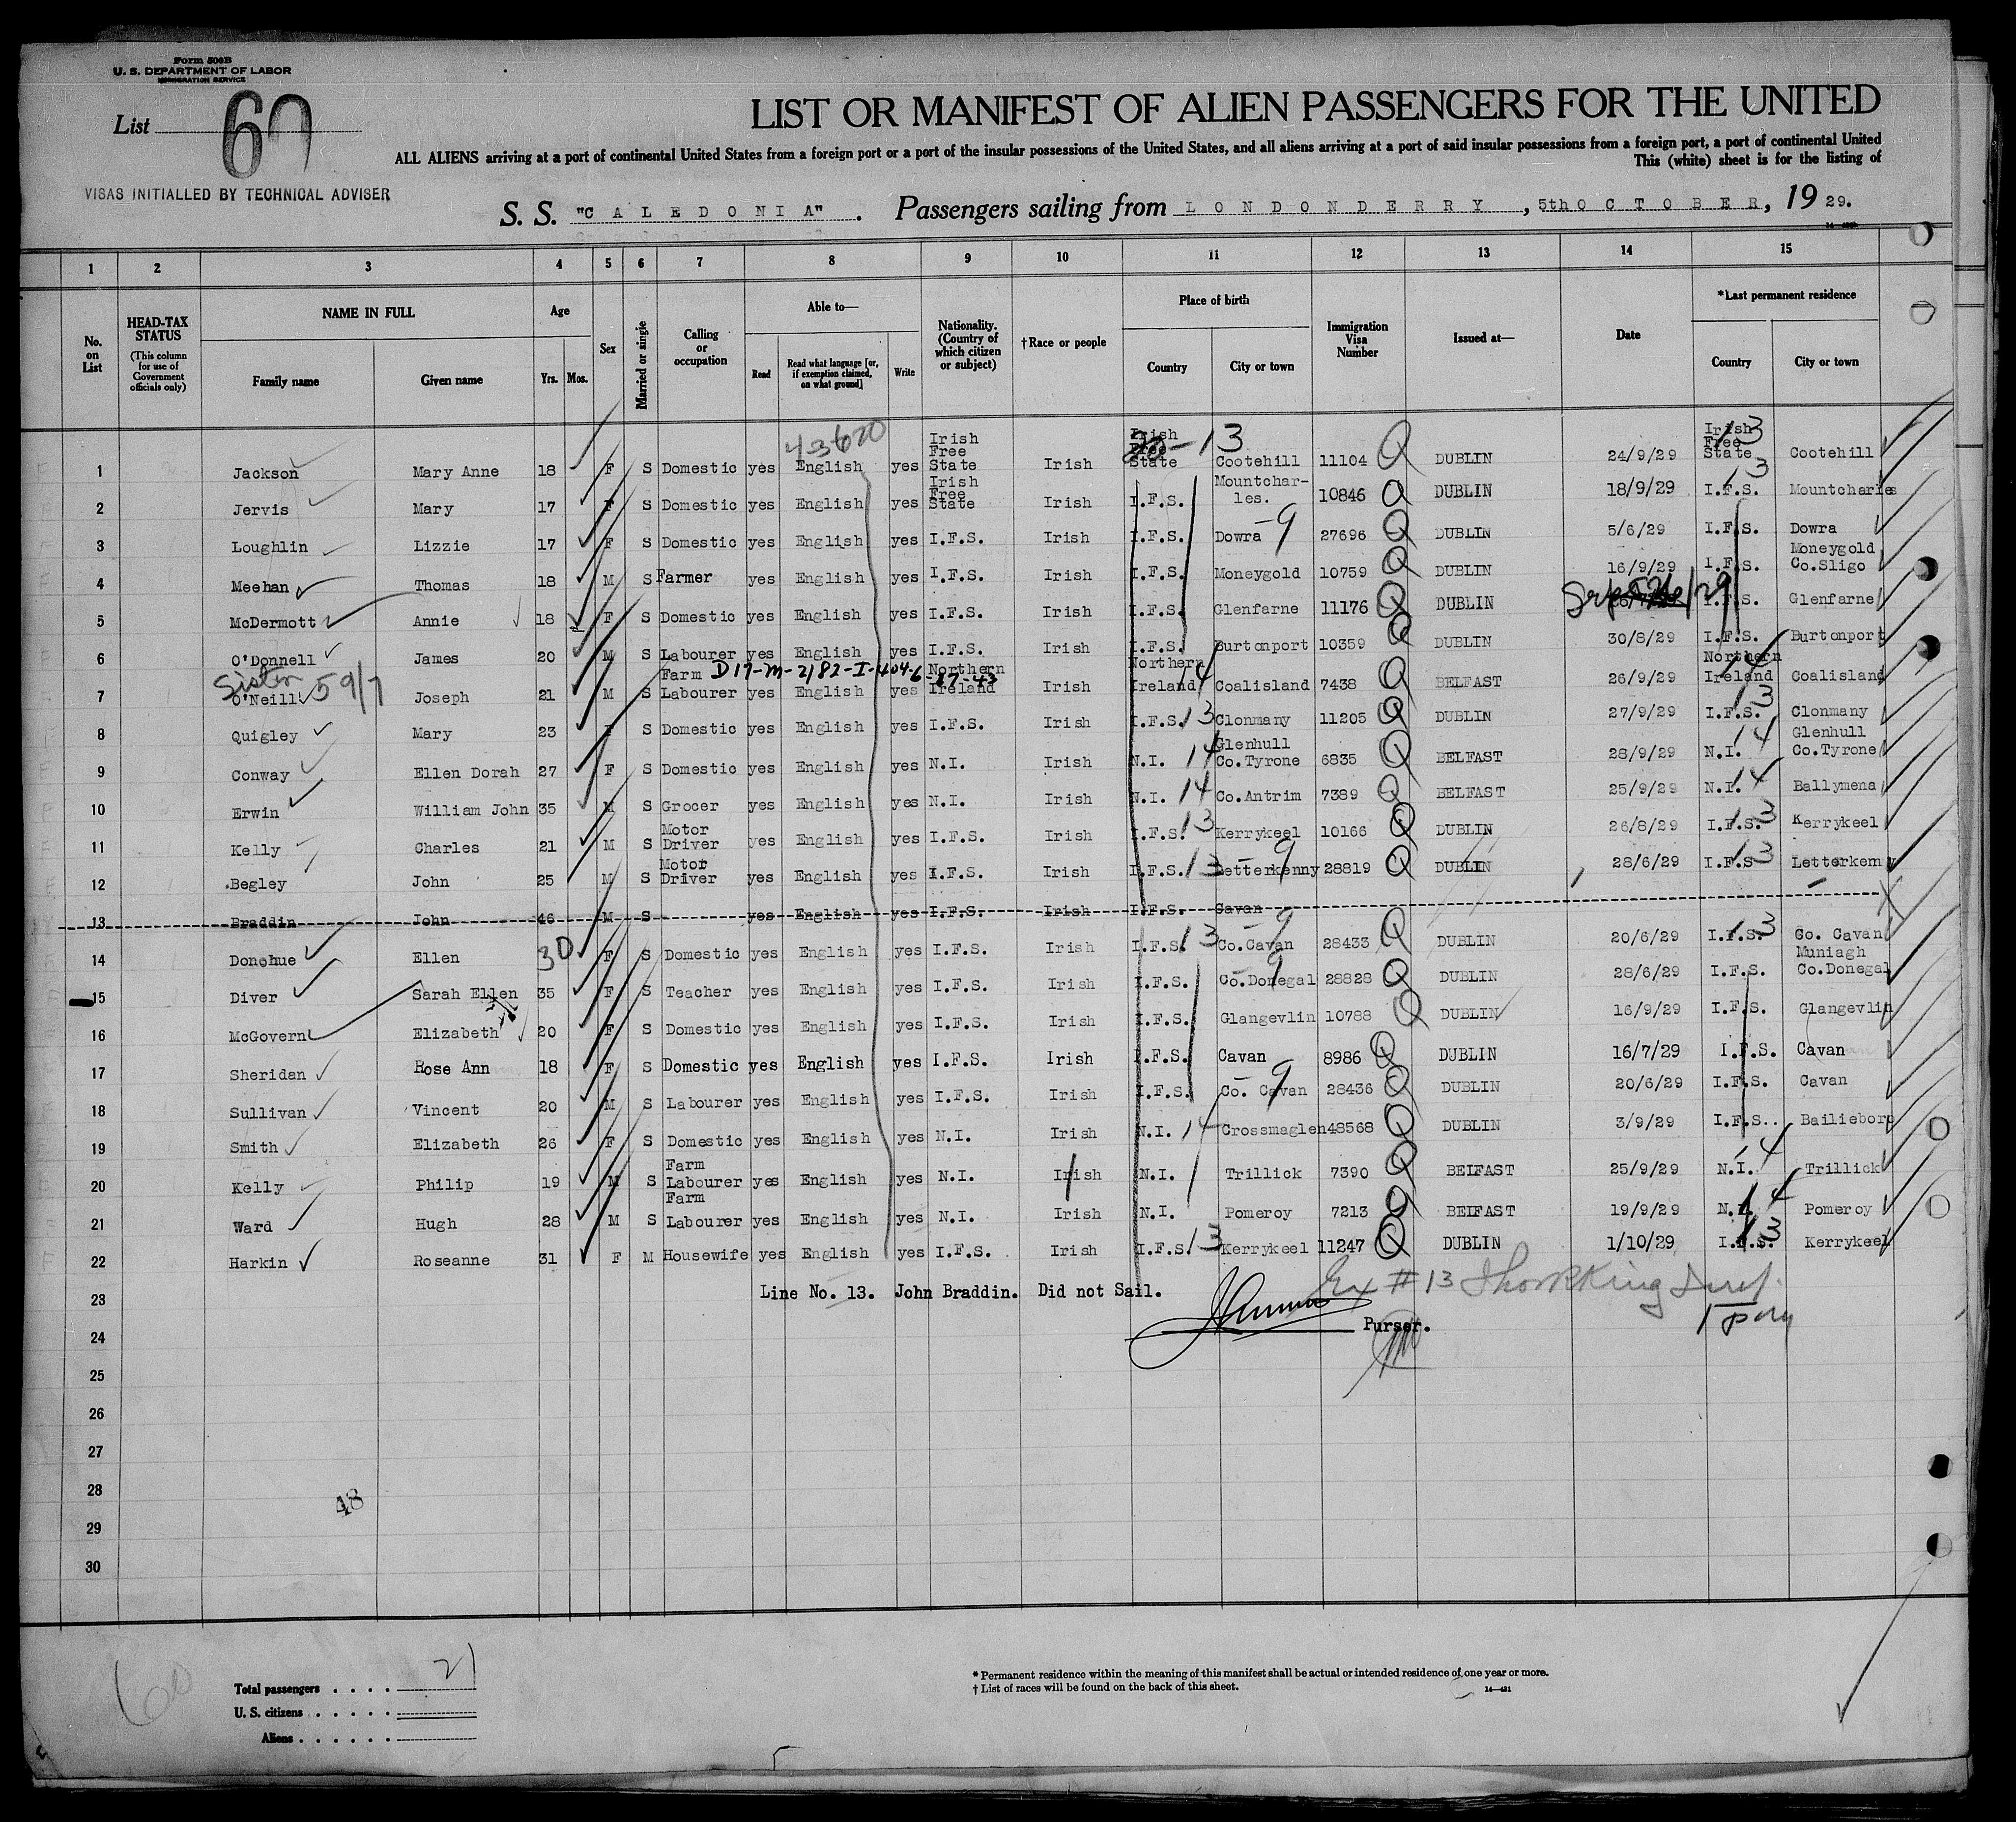 Form 500B
U. S. DEPARTMENT OF LABOR
IMMIGRATION SERVICE
List 60
VISAS INITIALLED BY TECHNICAL ADVISER
LIST OR MANIFEST OF ALIEN PASSENGERS FOR THE UNITED
ALL ALIENS arriving at a port of continental United States from a foreign port or a port of the insular possessions of the United States, and all aliens arriving at a port of said insular possessions from a foreign port, a port of continental United
This (white) sheet is for the listing of
S. S. "CALEDONIA". Passengers sailing from LONDONDERRY, 5th OCTOBER, 19 29.
1 2 3 4 5 6 7 8 9 10 11 12 13 14 15
No. on List
HEAD-TAX STATUS (This column for use of Government officials only)
NAME IN FULL Family name Given name
Age Yrs. Mos.
Sex
Married or single
Calling or occupation
Able to— Read Read what language [or, if exemption claimed, on what ground] Write
Nationality. (Country of which citizen or subject)
†Race or people
Place of birth Country City or town
Immigration Visa Number
Issued at—
Date
*Last permanent residence Country City or town
43620
1 Jackson Mary Anne 18 F S Domestic yes English yes Irish Free State Irish Irish Free State 13 Cootehill 11104 DUBLIN 24/9/29 Irish Free State 13 Cootehill
2 Jervis Mary 17 F S Domestic yes English yes Irish Free State Irish I.F.S. Mountchar-les. 10846 DUBLIN 18/9/29 I.F.S. 13 Mountcharles
3 Loughlin Lizzie 17 F S Domestic yes English yes I.F.S. Irish I.F.S. Dowra -9 27696 DUBLIN 5/6/29 I.F.S. Dowra
4 Meehan Thomas 18 M S Farmer yes English yes I.F.S. Irish I.F.S. Moneygold 10759 DUBLIN 16/9/29 I.F.S. Moneygold Co.Sligo
5 McDermott Annie 18 F S Domestic yes English yes I.F.S. Irish I.F.S. Glenfarne 11176 DUBLIN I.F.S. Glenfarne
6 O'Donnell James 20 M S Labourer yes English yes I.F.S. Irish I.F.S. Burtonport 10359 DUBLIN 30/8/29 I.F.S. Burtonport
Sister 59/7 D17-M-2182-I-404-6-87-43
7 O'Neill Joseph 21 M S Farm Labourer yes English yes Northern Ireland Irish Northern Ireland 14 Coalisland 7438 BELFAST 26/9/29 Northern Ireland 14 Coalisland
8 Quigley Mary 23 F S Domestic yes English yes I.F.S. Irish I.F.S. 13 Clonmany 11205 DUBLIN 27/9/29 I.F.S. 13 Clonmany
9 Conway Ellen Dorah 27 F S Domestic yes English yes N.I. Irish N.I. 14 Glenhull Co.Tyrone 6835 BELFAST 28/9/29 N.I. 14 Glenhull Co.Tyrone
10 Erwin William John 35 M S Grocer yes English yes N.I. Irish N.I. 14 Co.Antrim 7389 BELFAST 25/9/29 N.I. 14 Ballymena
11 Kelly Charles 21 M S Motor Driver yes English yes I.F.S. Irish I.F.S. 13 Kerrykeel 10166 DUBLIN 26/8/29 I.F.S. 13 Kerrykeel
12 Begley John 25 M S Motor Driver yes English yes I.F.S. Irish I.F.S. 13 Letterkenny -9 28819 DUBLIN 28/6/29 I.F.S 13 Letterkenny
13 Braddin John 46 M S yes English yes I.F.S. Irish I.F.S. Cavan
14 Donohue Ellen 30 F S Domestic yes English yes I.F.S. Irish I.F.S. 13 Co.Cavan -9 28433 DUBLIN 20/6/29 I.F.S. 13 Co. Cavan
15 Diver Sarah Ellen 35 F S Teacher yes English yes I.F.S. Irish I.F.S. Co.Donegal -9 28828 DUBLIN 28/6/29 I.F.S. Muniagh Co.Donegal
16 McGovern Elizabeth 20 F S Domestic yes English yes I.F.S. Irish I.F.S. Glangevlin 10788 DUBLIN 16/9/29 I.F.S. Glangevlin
17 Sheridan Rose Ann 18 F S Domestic yes English yes I.F.S. Irish I.F.S. Cavan 8986 DUBLIN 16/7/29 I.F.S. Cavan
18 Sullivan Vincent 20 M S Labourer yes English yes I.F.S. Irish I.F.S. Co. Cavan -9 28436 DUBLIN 20/6/29 I.F.S. Cavan
19 Smith Elizabeth 26 F S Domestic yes English yes N.I. Irish N.I. 14 Crossmaglen 48568 DUBLIN 3/9/29 I.F.S.. Bailieboro
20 Kelly Philip 19 M S Farm Labourer yes English yes N.I. Irish N.I. Trillick 7390 BELFAST 25/9/29 N.I. 14 Trillick
21 Ward Hugh 28 M S Farm Labourer yes English yes N.I. Irish N.I. Pomeroy 7213 BELFAST 19/9/29 N.I. 14 Pomeroy
22 Harkin Roseanne 31 F M Housewife yes English yes I.F.S. Irish I.F.S. 13 Kerrykeel 11247 DUBLIN 1/10/29 I.F.S. 13 Kerrykeel
23 Line No. 13. John Braddin. Did not Sail. Ex #13
24 Purser.
25
26
27
28
48
29
30
60
Total passengers . . . . 21
U. S. citizens . . . . .
Aliens . . . . . .
* Permanent residence within the meaning of this manifest shall be actual or intended residence of one year or more.
† List of races will be found on the back of this sheet.
14—431